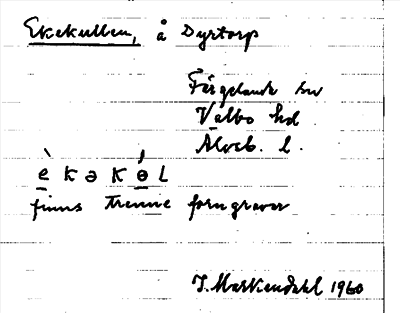 Ekekullen, å Dyrtorp
Färgelanda sn
Valbo hd
Älvsb. l.
è k ə k ɵ́ L
finns trenne forngravar
J. Markendahl 1960